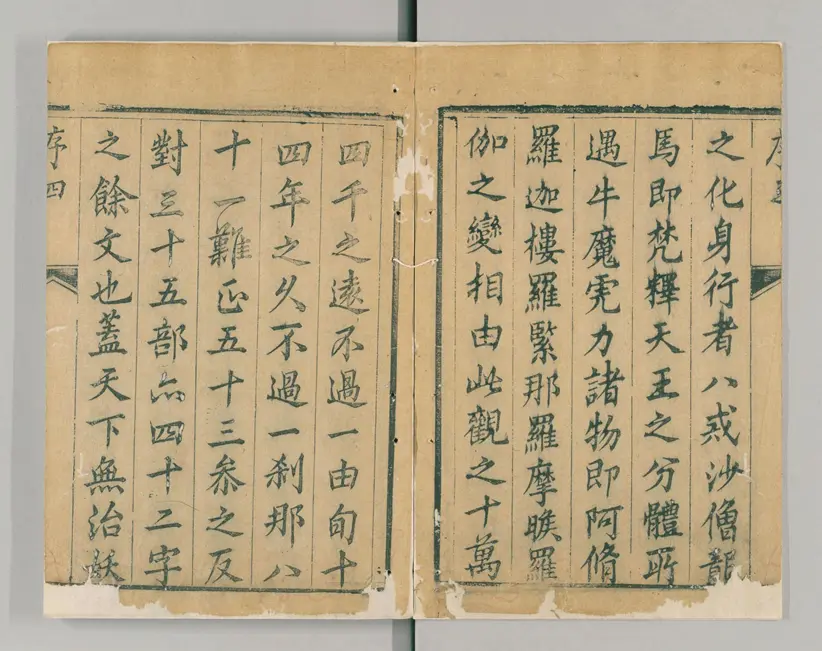 之化身行者八戒沙僧龍
馬即梵釋天王之分體所
遇牛魔虎力諸物即阿脩
羅迦樓羅緊那羅摩睺羅
伽之變相由此觀之十萬
四千之遠不過一由旬十
四年之久不過一刹那八
十一難正五十三參之反
對三十五部亦四十二字
之餘文也蓋天下無治妖
序四